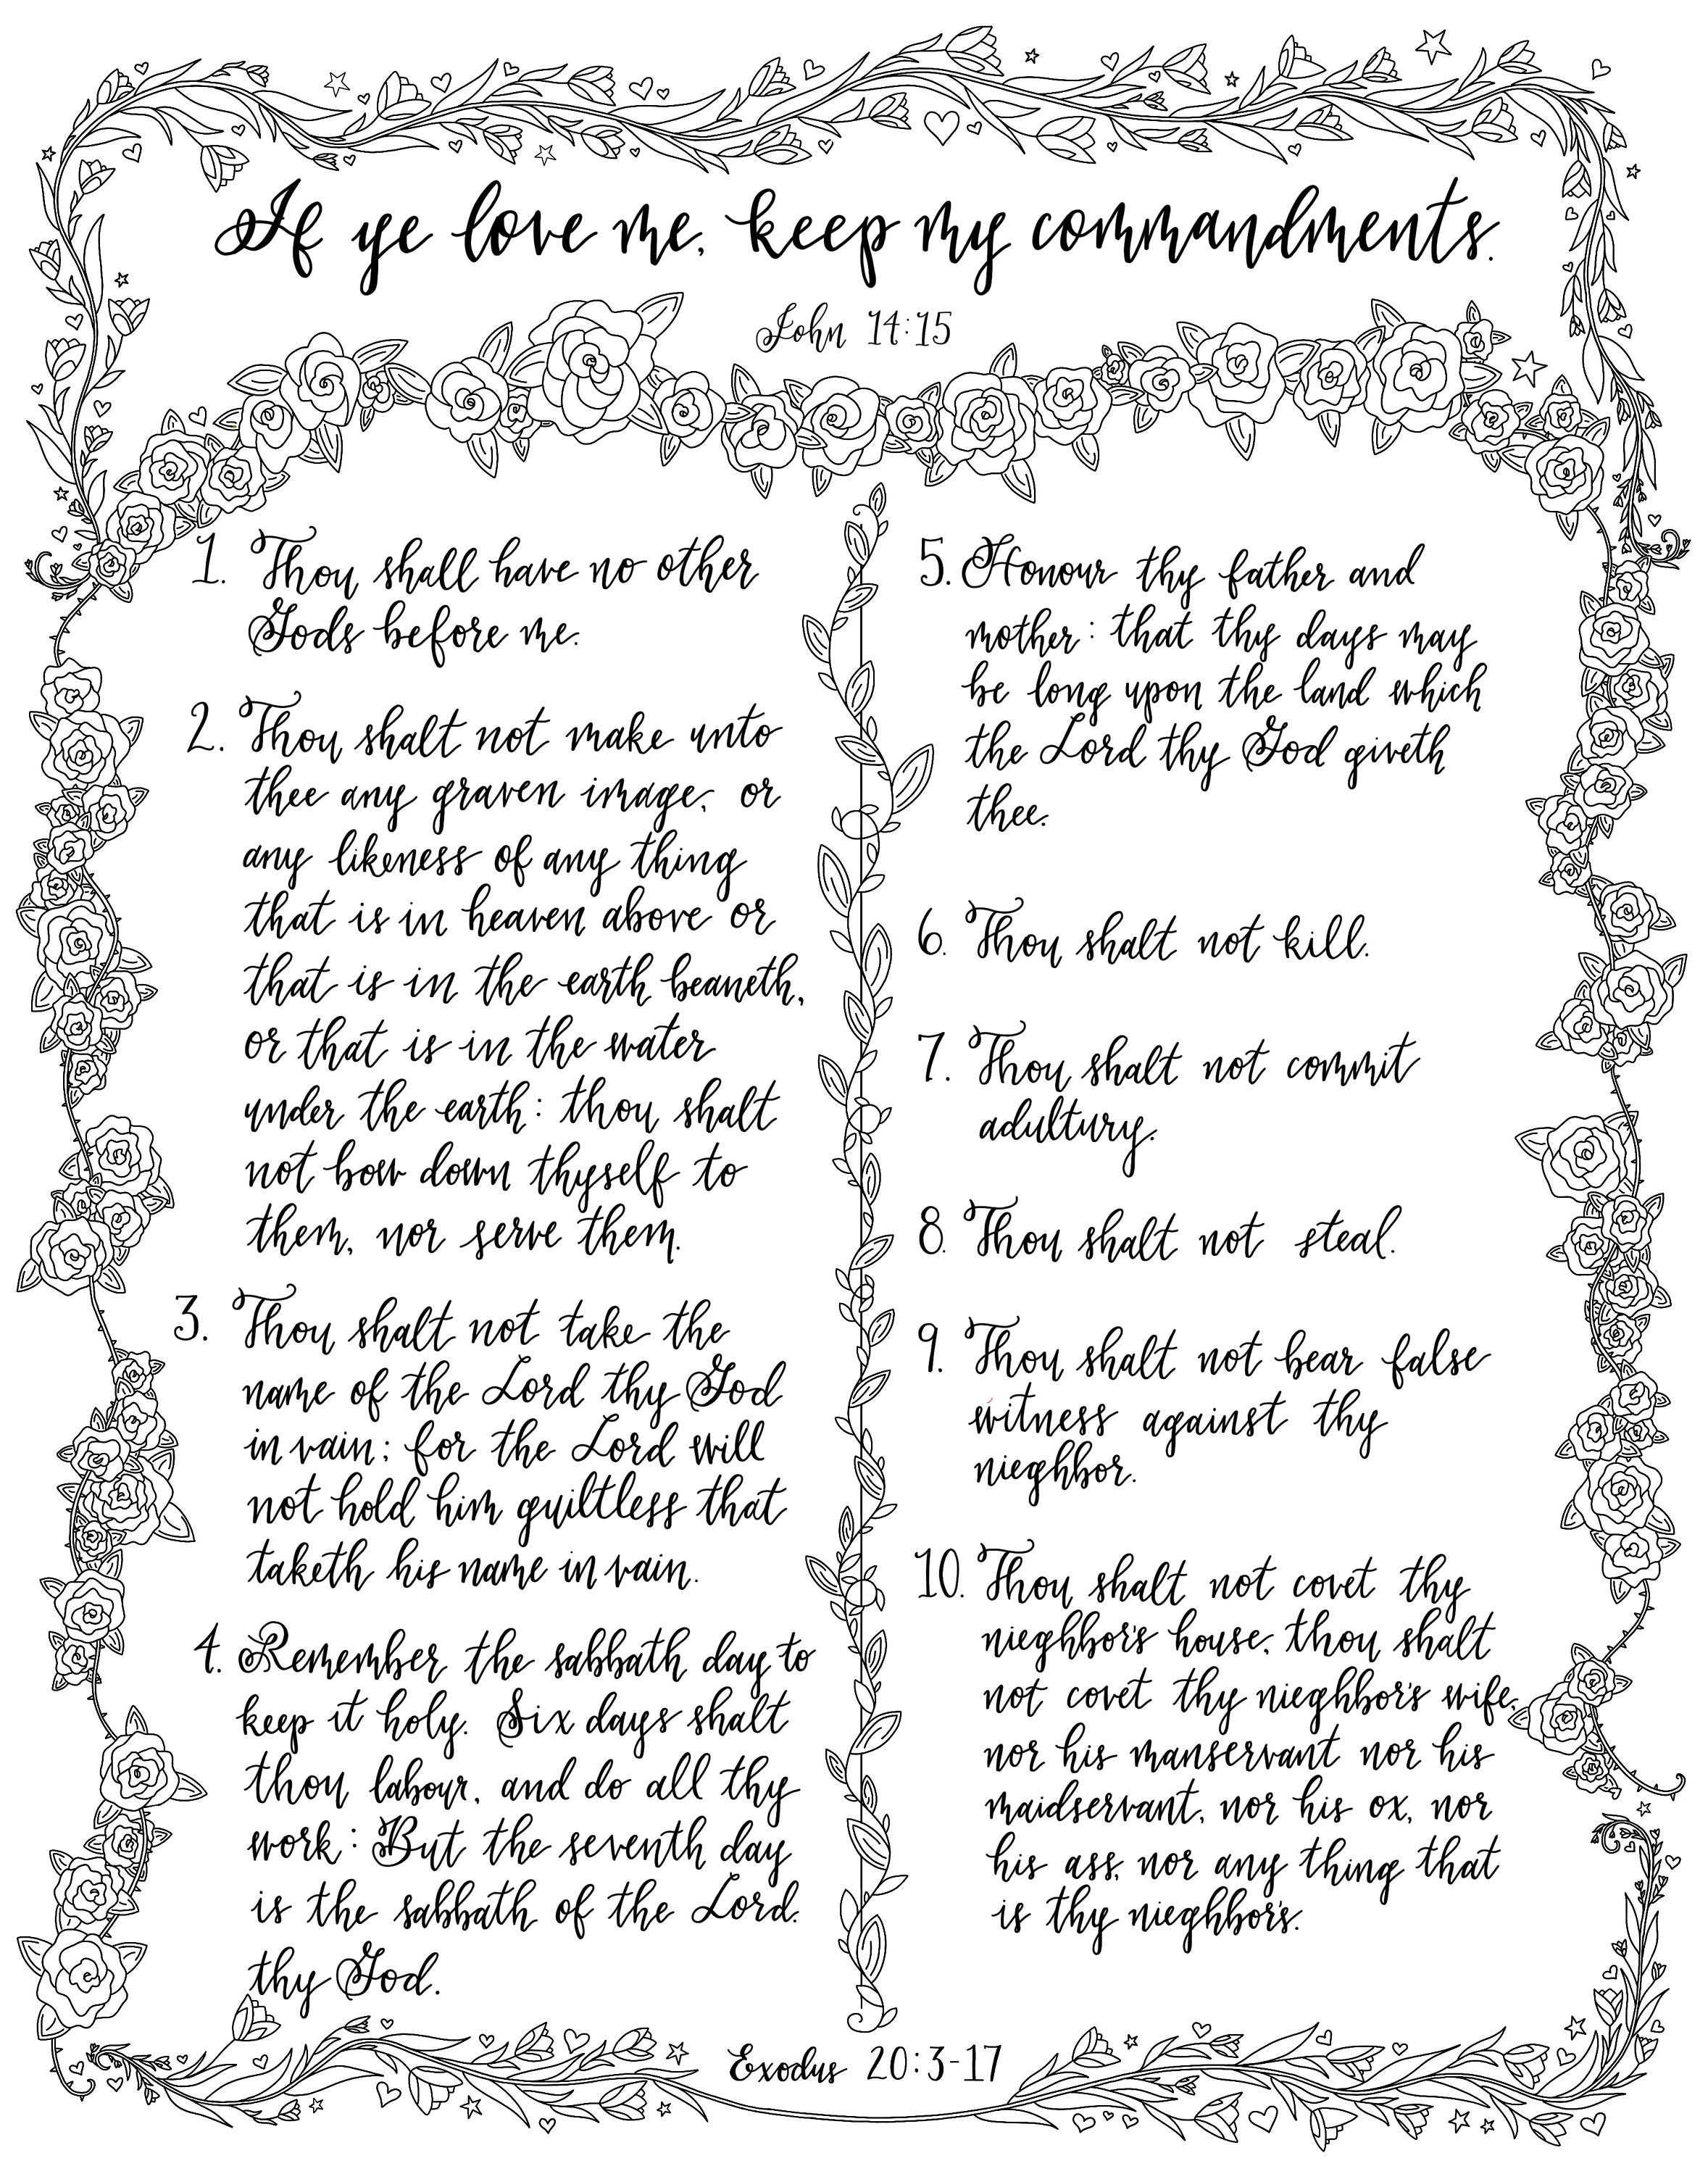 If ye love me, keep my commandments.
John 14:15
1. Thou shall have no other
Gods before me.
2. Thou shalt not make unto
thee any graven image, or
any likeness of any thing
that is in heaven above or
that is in the earth beaneth,
or that is in the water
under the earth: thou shalt
not bow down thyself to
them, nor serve them.
3. Thou shalt not take the
name of the Lord thy God
in vain; for the Lord will
not hold him guiltless that
taketh his name in vain.
4. Remember the sabbath day to
keep it holy. Six days shalt
thou labour, and do all thy
work: But the seventh day
is the sabbath of the Lord.
thy God.
5. Honour thy father and
mother: that thy days may
be long upon the land which
the Lord thy God giveth
thee.
6. Thou shalt not kill.
7. Thou shalt not commit
adultury.
8. Thou shalt not steal.
9. Thou shalt not bear false
witness against thy
nieghbor.
10. Thou shalt not covet thy
nieghbor's house, thou shalt
not covet thy nieghbor's wife,
nor his manservant nor his
maidservant, nor his ox, nor
his ass, nor any thing that
is thy nieghbor's.
Exodus 20:3-17